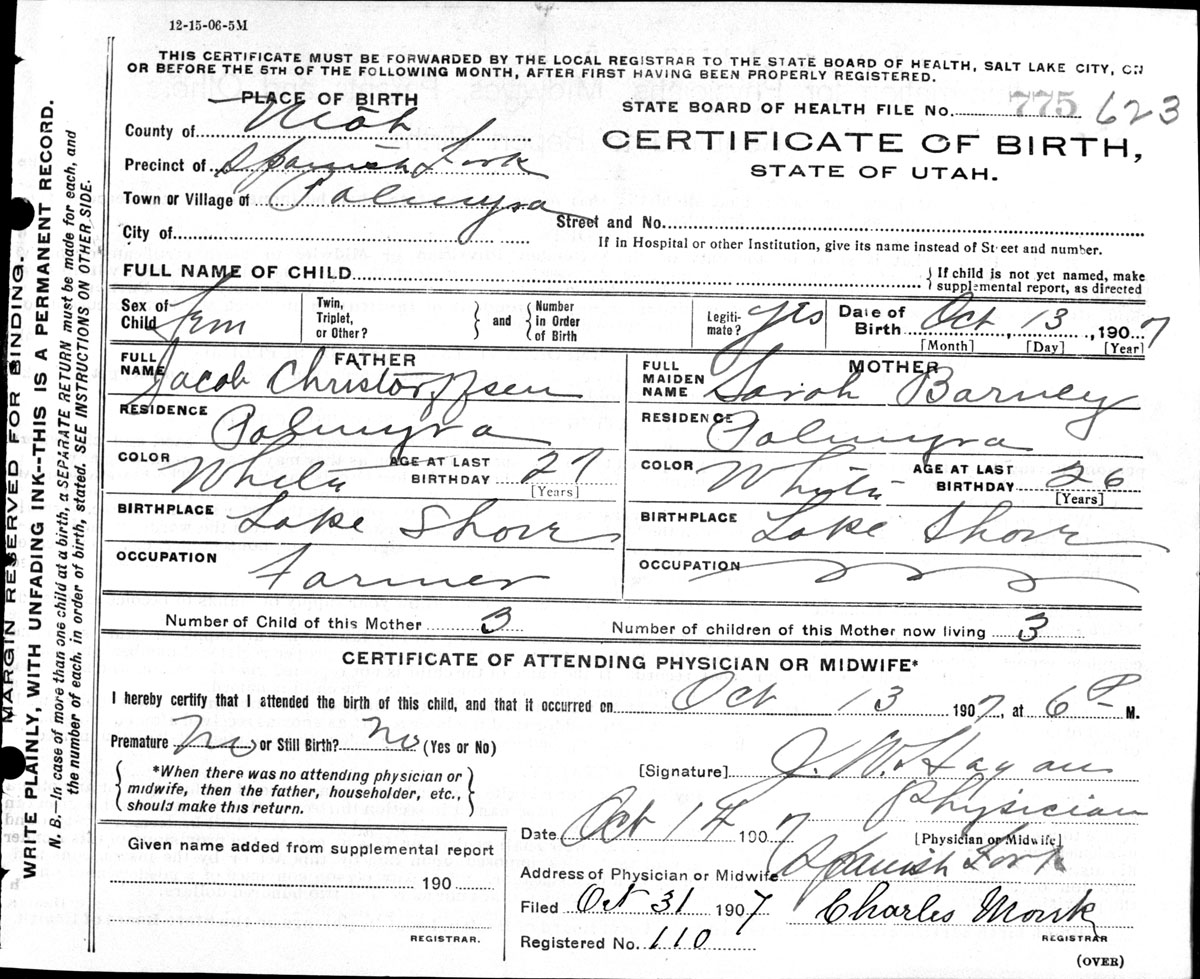 12-15-06-5M
THIS CERTIFICATE MUST BE FORWARDED BY THE LOCAL REGISTRAR TO THE STATE BOARD OF HEALTH, SALT LAKE CITY, ON
OR BEFORE THE 5TH OF THE FOLLOWING MONTH, AFTER FIRST HAVING BEEN PROPERLY REGISTERED.
PLACE OF BIRTH
STATE BOARD OF HEALTH FILE No. 775 623
County of Utah
CERTIFICATE OF BIRTH,
Precinct of Spanish Fork
STATE OF UTAH.
Town or Village of Palmyra
Street and No.
City of
If in Hospital or other Institution, give its name instead of Street and number.
FULL NAME OF CHILD
{ If child is not yet named, make
supplemental report, as directed
Sex of Child Fem
Twin, Triplet, or Other?
} and {
Number in Order of Birth
Legiti-mate? yes
Date of Birth Oct 13, 1907
[Month] [Day] [Year]
FATHER
FULL NAME Jacob Christoffsen
RESIDENCE Palmyra
COLOR White AGE AT LAST BIRTHDAY 27
[Years]
BIRTHPLACE Lake Shore
OCCUPATION Farmer
MOTHER
FULL MAIDEN NAME Sarah Barney
RESIDENCE Palmyra
COLOR White AGE AT LAST BIRTHDAY 26
[Years]
BIRTHPLACE Lake Shore
OCCUPATION
Number of Child of this Mother 3 Number of children of this Mother now living 3
CERTIFICATE OF ATTENDING PHYSICIAN OR MIDWIFE*
I hereby certify that I attended the birth of this child, and that it occurred on Oct 13 1907, at 6 P M.
Premature No or Still Birth? No (Yes or No)
{ *When there was no attending physician or
midwife, then the father, householder, etc.,
should make this return. }
[Signature] J. W. Hagan
Physician
Date Oct 14 1907 [Physician or Midwife]
Address of Physician or Midwife Spanish Fork
Given name added from supplemental report
190
REGISTRAR.
Filed Oct 31 1907 Charles Monk
REGISTRAR
Registered No. 110
(OVER)
MARGIN RESERVED FOR BINDING.
WRITE PLAINLY, WITH UNFADING INK--THIS IS A PERMANENT RECORD.
N. B.—In case of more than one child at a birth, a SEPARATE RETURN must be made for each, and
the number of each, in order of birth, stated. SEE INSTRUCTIONS ON OTHER SIDE.